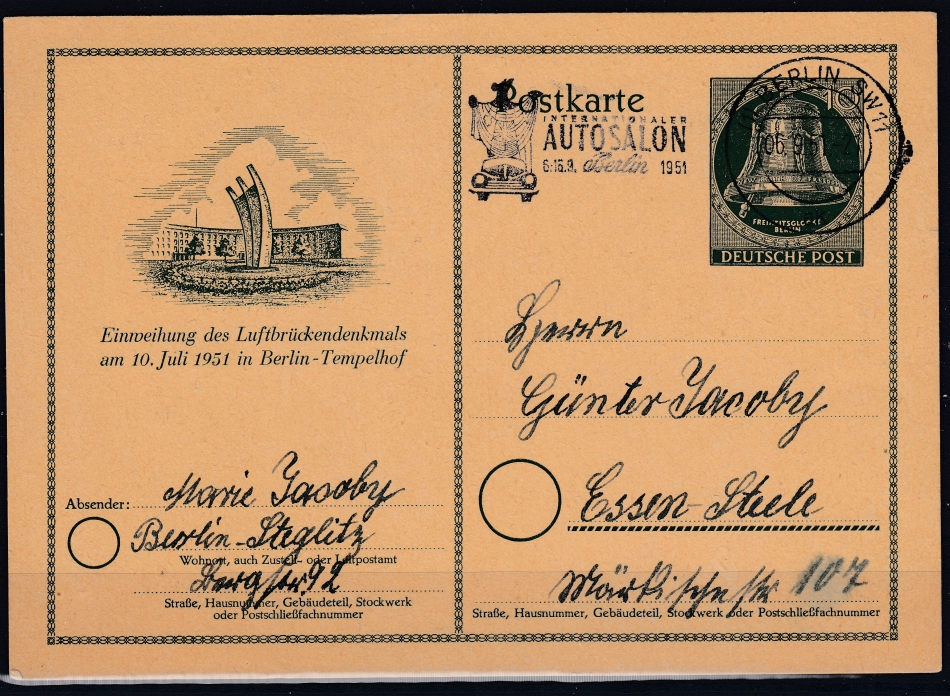 Einweihung des Luftbrückendenkmals
am 10. Juli 1951 in Berlin-Tempelhof
Absender: Marie Jacoby
Berlin-Steglitz
Wohnort, auch Zustell- oder Luftpostamt
Bergstr. 92
Straße, Hausnummer, Gebäudeteil, Stockwerk
oder Postschließfachnummer
Postkarte
INTERNATIONALER
AUTOSALON
6.-16.9. Berlin 1951
BERLIN SW 11
10
FREIHEITSGLOCKE
BERLIN
DEUTSCHE POST
Herrn
Günter Jacoby
Essen-Steele
Märkischestr 107
Straße, Hausnummer, Gebäudeteil, Stockwerk oder Postschließfachnummer